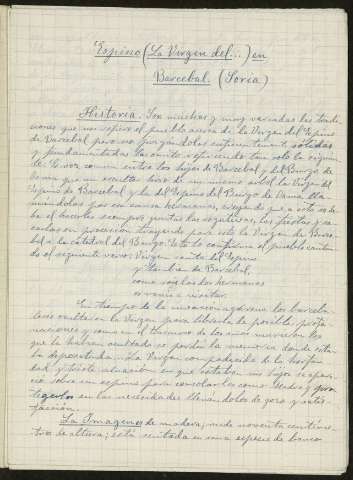 Espino (La Virgen del...) en
Barcebal. (Soria)
Historia. Son muchas y muy variadas las tradi-
ciones que nos refiere el pueblo acerca de la Virgen del Espino
de Barcebal pero no juzgándolas suficientemente sólidas
y fundamentadas las omito refiriendo tan solo la siguien-
te: Es voz común entre los hijos de Barcebal y del Burgo de
Osma que un escultor hizo de un mismo árbol la Virgen del
Espino de Barcebal y la del Espino del Burgo de Osma lla-
mándolas por esa causa hermanas, creyendo que a esto se de-
be el hacerles
en procesión trayendo para esto la Virgen de Barce-
bal a la catedral del Burgo. Esto lo confirma el pueblo cantan-
do el siguiente verso: Virgen santa del Espino
y también de Barcebal,
como sois las dos hermanas
os venís a visitar.
En tiempo de la invasión agarena los barceba-
leses ocultaron la Virgen para librarla de posibles profa-
naciones y como en el transcurso de los años murieron los
que la habían ocultado se perdió la memoria donde esta-
ba depositada. La Virgen compadecida de la horfan-
dad y triste situación en que estaban sus hijos se apare-
ció sobre un espino para consolarlos como Madre y pro-
tegerlos en las necesidades llenándolos de gozo y satis-
facción.
La Imagen es de madera; mide noventa centíme-
tros de altura; está sentada en una especie de banco